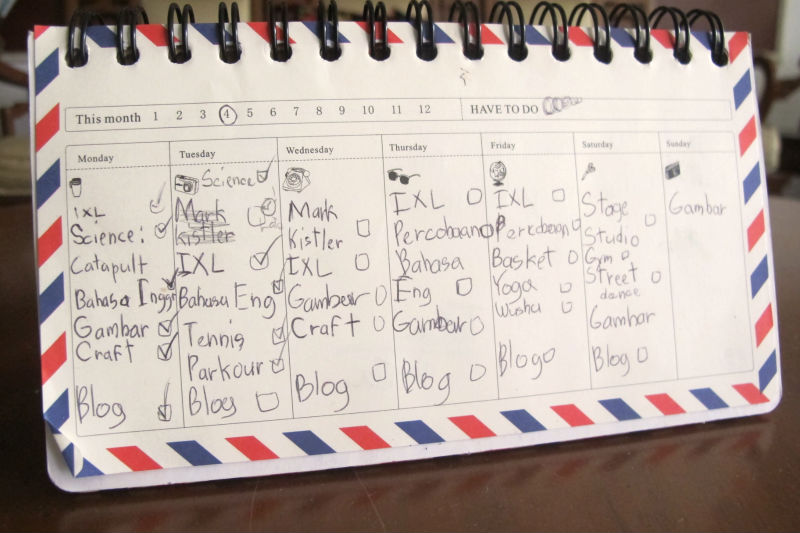 This month 1 2 3 4 5 6 7 8 9 10 11 12 HAVE TO DO
Monday
IXL
Science:
Catapult
Bahasa Inggr
Gambar
Craft
Blog
Tuesday
Science
Mark
Kistler
IXL
Bahasa Eng
Tennis
Parkour
Blog
Wednesday
Mark
Kistler
IXL
Gambar
Craft
Blog
Thursday
IXL
Percobaan
Bahasa
Eng
Gambar
Blog
Friday
IXL
Percobaan
Basket
Yoga
Wushu
Blog
Saturday
Stage
Studio
Gym
Street
dance
Gambar
Blog
Sunday
Gambar